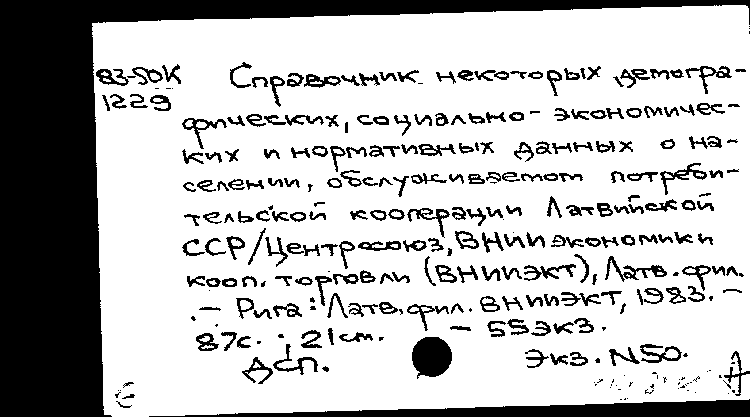 83-50К Справочник некоторых демогра-
1229
фических, социально- экономичес-
ких и нормативных данных о на-
селении, обслуживаемом потреби-
тельской кооперации Латвийской
ССР/Центросоюз, ВНИИ экономики
кооп. торговли (ВНИИЭКТ), Латв. фил.
.— Рига : Латв. фил. ВНИИЭКТ, 1983. —
87с. ; 21см. — 55экз.
ДСП. Экз. N50.
Є А